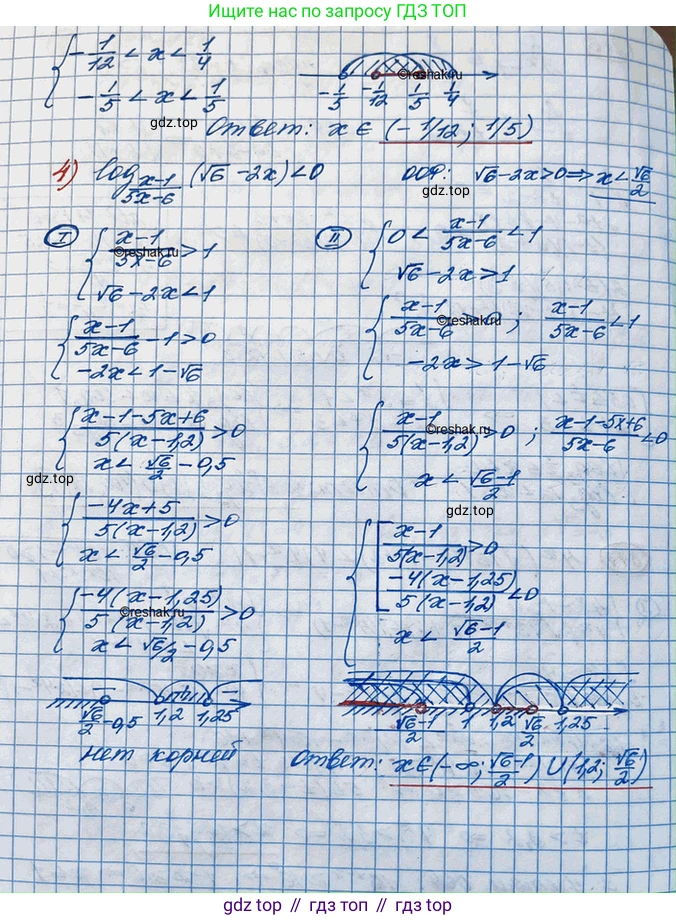 Ищите по запросу ГДЗ ТОП
{ -1/12 < x < 1/4
-1/5 < x < 1/5
-1/5 -1/12 1/5 1/4
©reshak.ru
gdz.top
Ответ: x ∈ (-1/12; 1/5)
4) log_{(x-1)/(5x-6)} (√6 - 2x) < 0
ООФ: √6 - 2x > 0 ⇒ x < √6/2
gdz.top
I { (x-1)/(5x-6) > 1
©reshak.ru
√6 - 2x < 1
{ (x-1)/(5x-6) - 1 > 0
-2x < 1 - √6
{ (x-1-5x+6)/(5(x-1,2)) > 0
x < √6/2 - 0,5
gdz.top
{ (-4x+5)/(5(x-1,2)) > 0
x < √6/2 - 0,5
{ (-4(x-1,25))/(5(x-1,2)) > 0
©reshak.ru
x < √6/2 - 0,5
√6/2 - 0,5 1,2 1,25
нет корней
II { 0 < (x-1)/(5x-6) < 1
√6 - 2x > 1
{ (x-1)/(5x-6) > 0 ; (x-1)/(5x-6) < 1
©reshak.ru
-2x > 1 - √6
{ (x-1)/(5(x-1,2)) > 0 ; (x-1-5x+6)/(5x-6) < 0
©reshak.ru
x < (√6-1)/2
gdz.top
{ [ (x-1)/(5(x-1,2)) > 0
(-4(x-1,25))/(5(x-1,2)) < 0
x < (√6-1)/2
(√6-1)/2 1 1,2 √6/2 1,25
Ответ: x ∈ (-∞; (√6-1)/2) ∪ (1,2; √6/2)
gdz.top // гдз топ // гдз.top